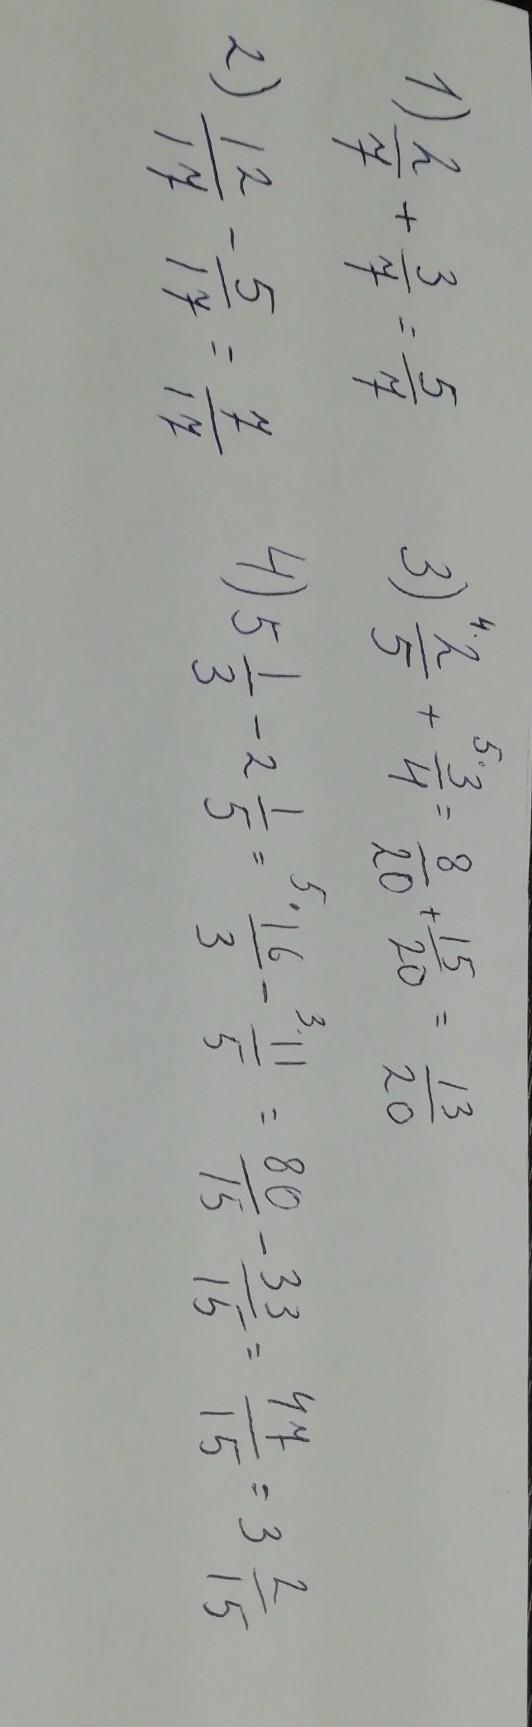 1) 2/7 + 3/7 = 5/7
2) 12/17 - 5/17 = 7/17
3) 4· 2/5 + 5· 3/4 = 8/20 + 15/20 = 13/20
4) 5 1/3 - 2 1/5 = 5· 16/3 - 3· 11/5 = 80/15 - 33/15 = 47/15 = 3 2/15